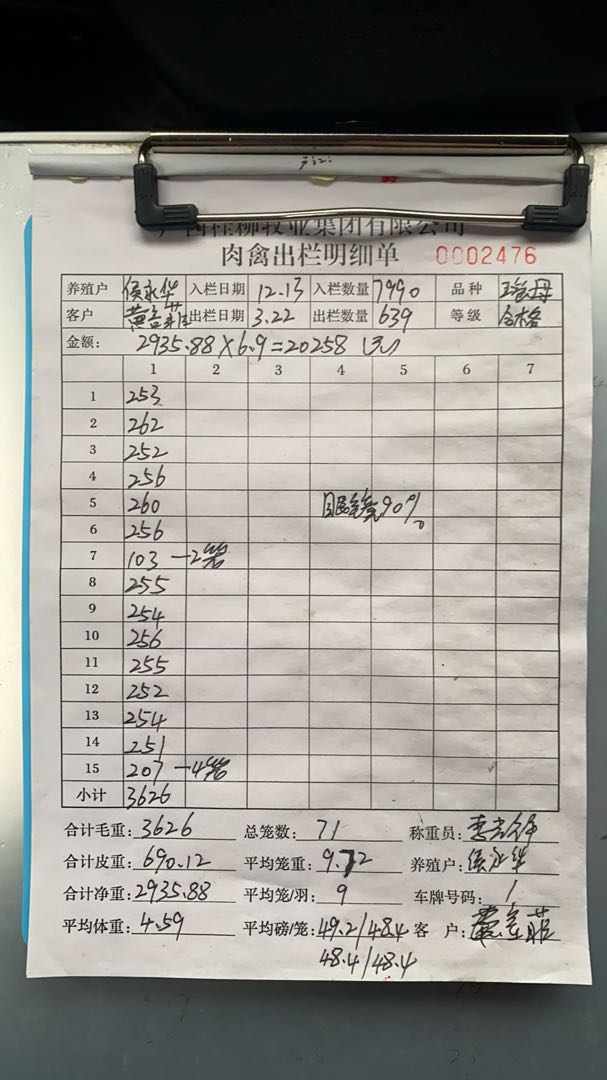 桂柳牧业集团有限公司
肉禽出栏明细单 0002476
养殖户 侯永华 入栏日期 12.13 入栏数量 7990 品种 瑶母
客户 出栏日期 3.22 出栏数量 639 等级 合格
金额: 2935.88×6.9=20258(元)
1 2 3 4 5 6 7
1 253
2 262
3 252
4 256
5 260 眼镜90%
6 256
7 103 —2笼
8 255
9 254
10 256
11 255
12 252
13 254
14 251
15 207 —4笼
小计 3626
合计毛重: 3626 总笼数: 71 称重员:
合计皮重: 690.12 平均笼重: 9.72 养殖户: 侯永华
合计净重: 2935.88 平均笼/羽: 9 车牌号码: 1
平均体重: 4.59 平均磅/笼: 49.2/48.4 客 户:
48.4/48.4